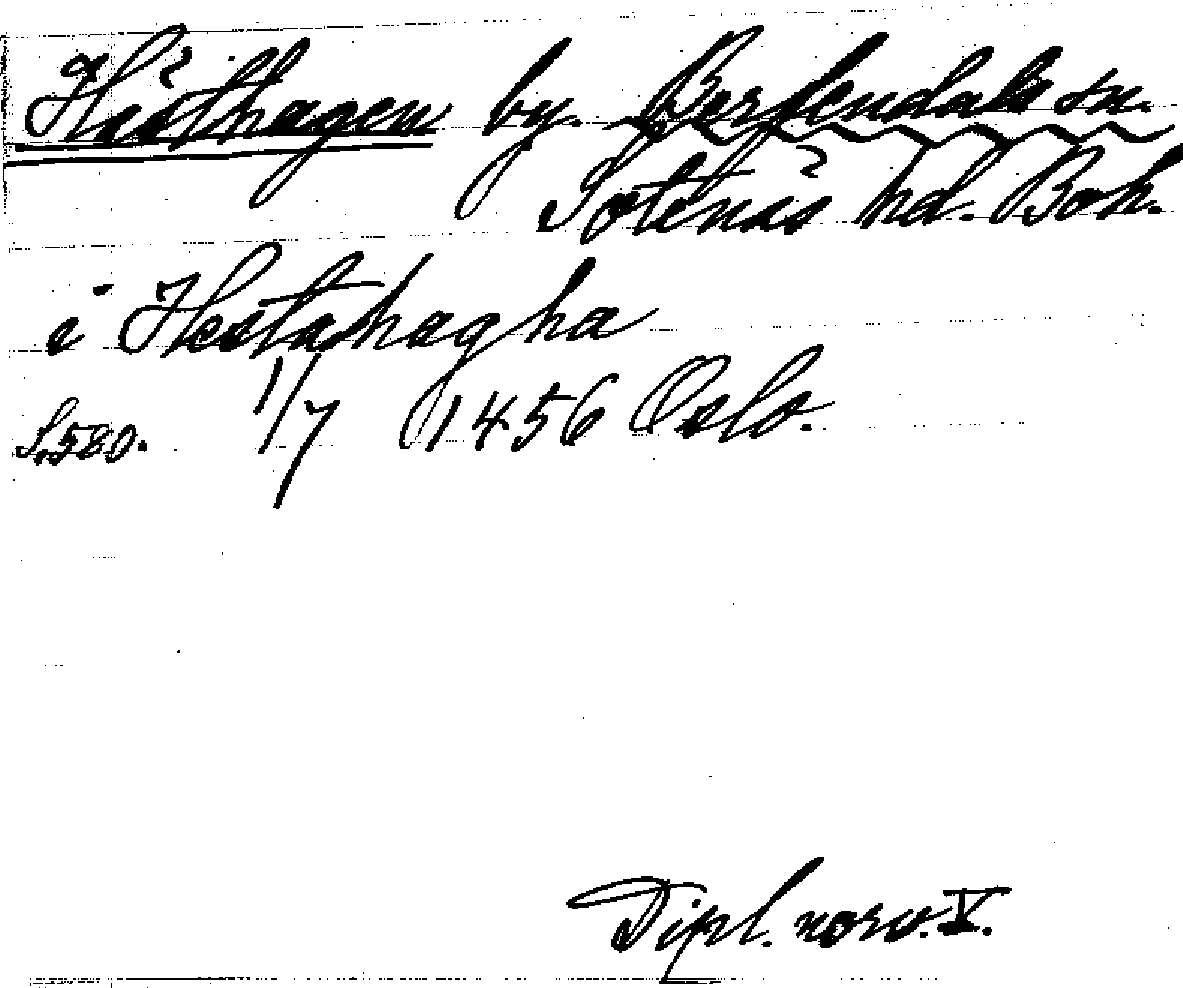 Hästhagen by. Berfendals sn.
Sotenäs hd. Boh.
i Hestahagha
S. 580. 1/7 1456 Oslo.
Dipl. norv. V.